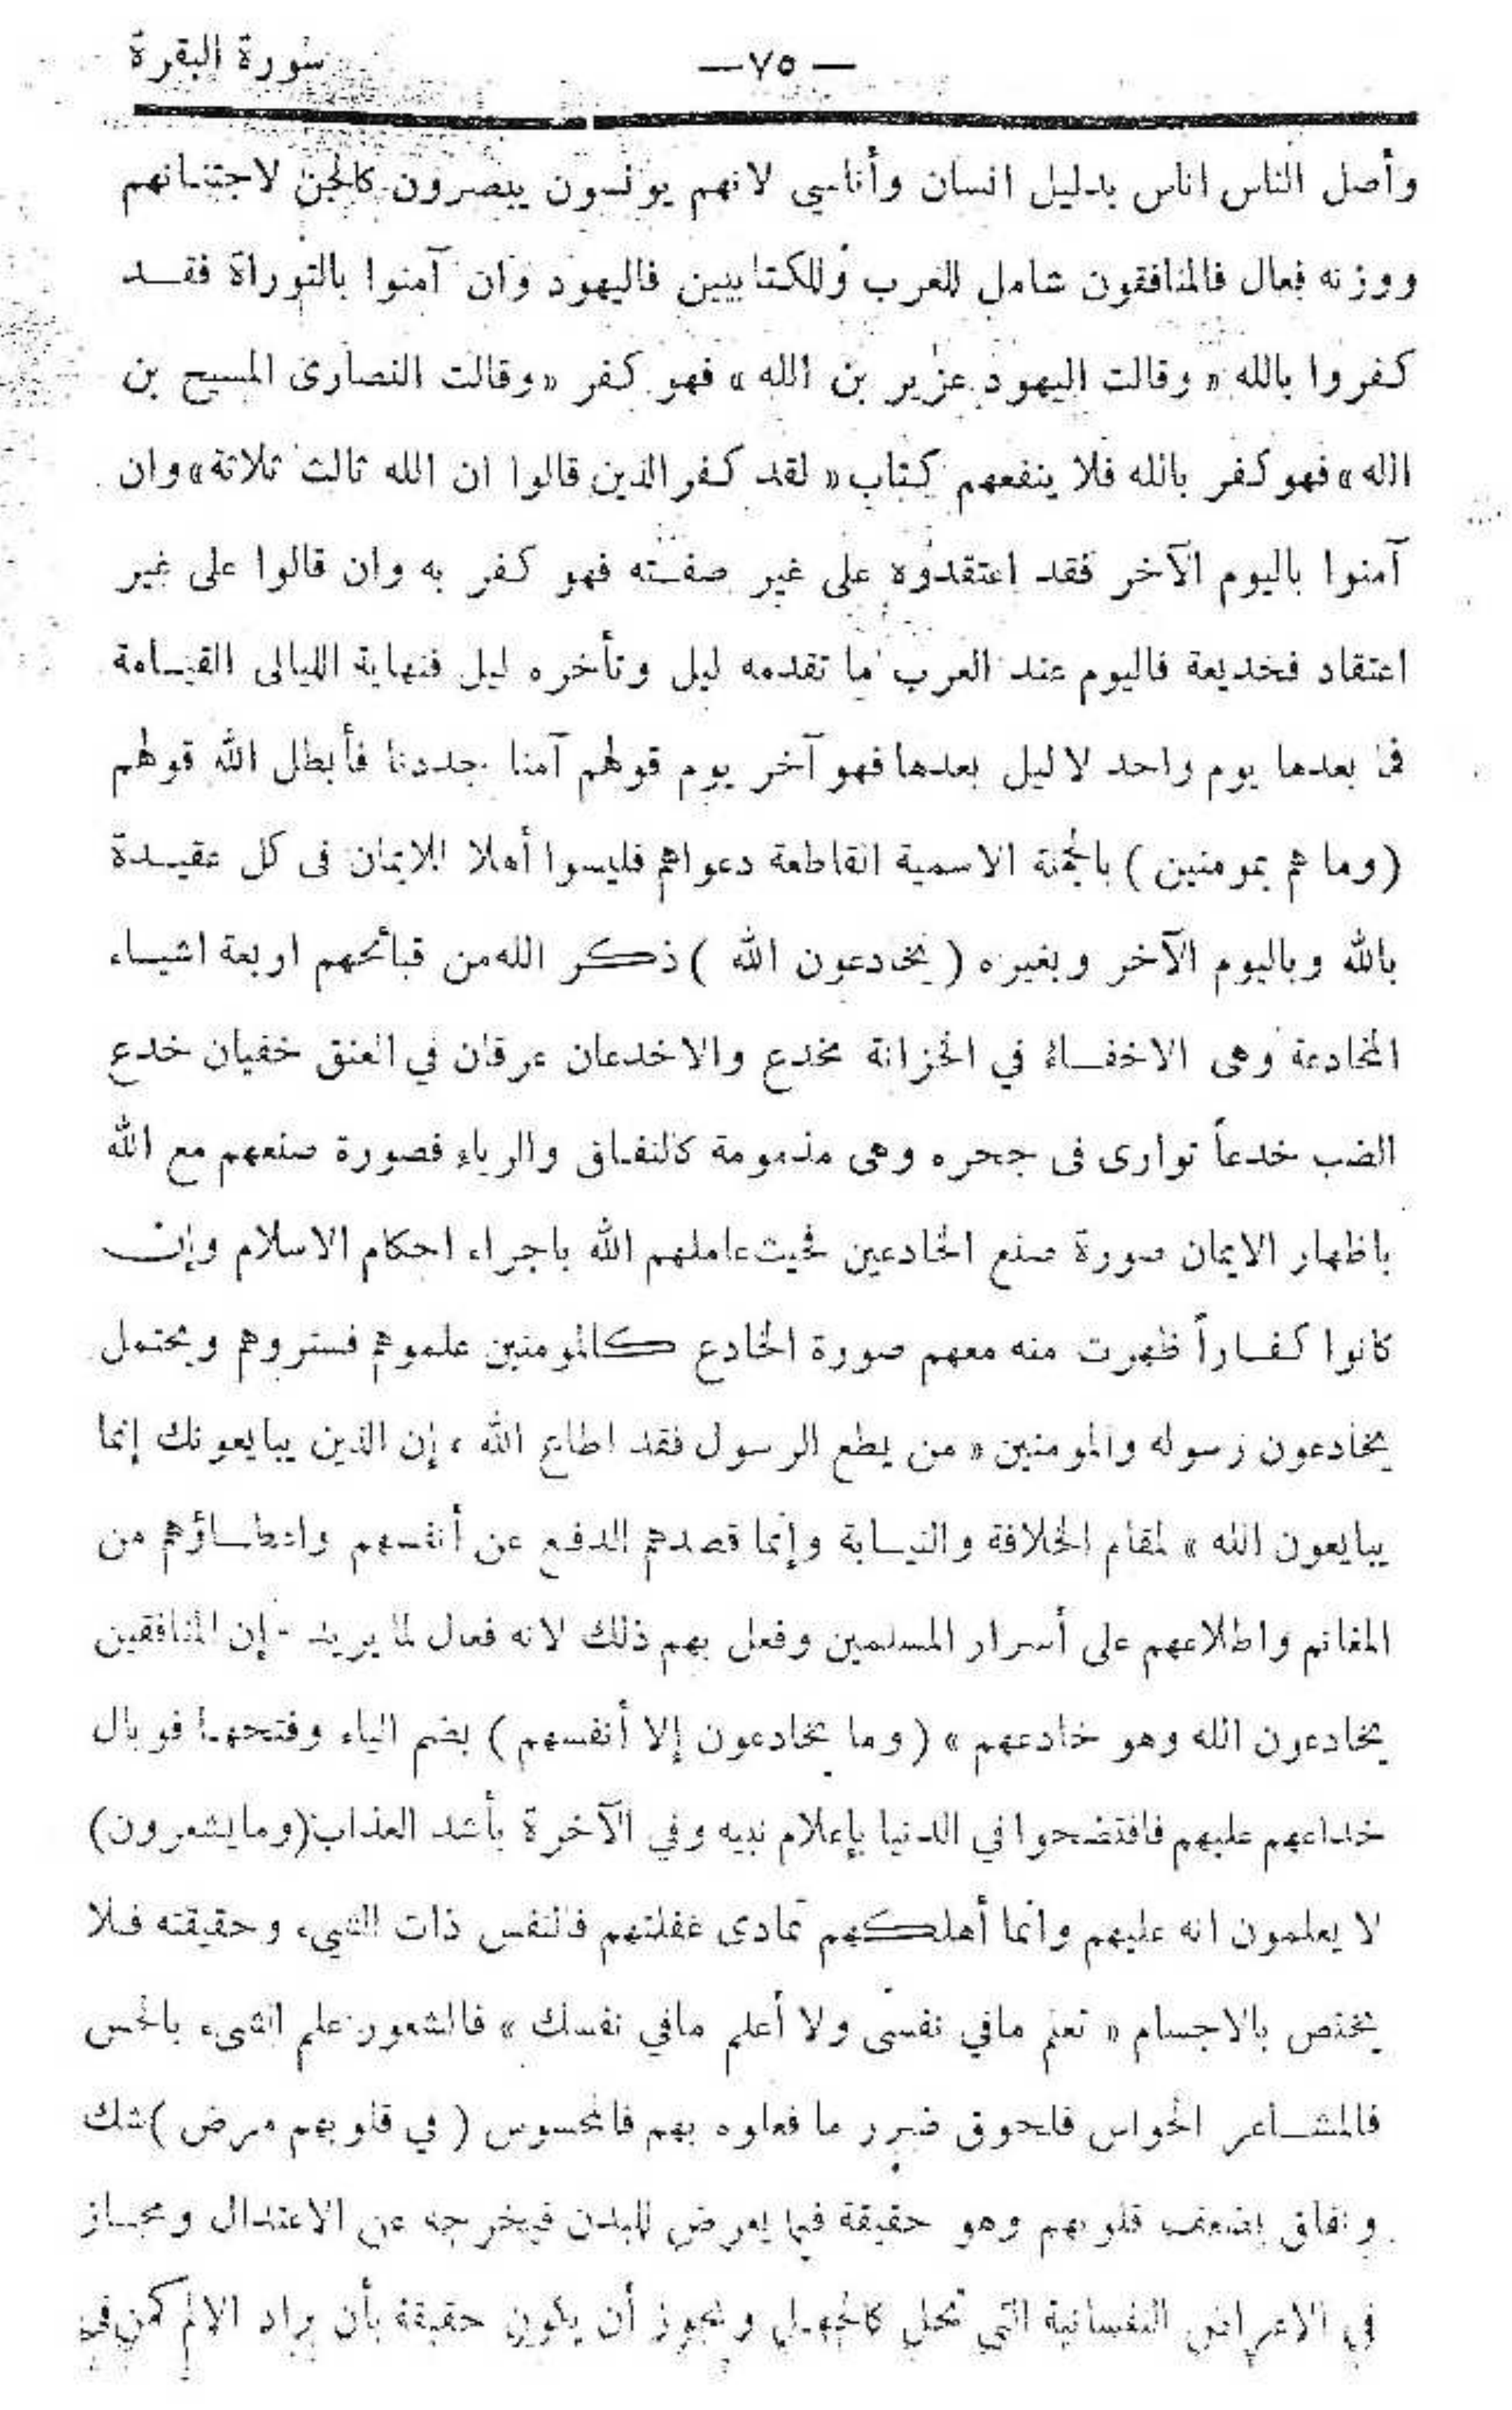 سورة البقرة
— ٧٥ —
وأصل الناس اناس بدليل انسان وأناسي لانهم يونسون يبصرون كالجن لاجتنانهم
ووزنه فعال فالمنافقون شامل للعرب وللكتابيين فاليهود وان آمنوا بالتوراة فقد
كفروا بالله « وقالت اليهود عزير بن الله » فهو كفر « وقالت النصارى المسيح بن
الله » فهو كفر بالله فلا ينفعهم كتاب « لقد كفر الذين قالوا ان الله ثالث ثلاثة » وان
آمنوا باليوم الآخر فقد اعتقدوه على غير صفته فهو كفر به وان قالوا على غير
اعتقاد فخديعة فاليوم عند العرب ما تقدمه ليل وتأخره ليل فنهاية الليالى القيامة
فما بعدها يوم واحد لا ليل بعدها فهو آخر يوم قولهم آمنا جددنا فأبطل الله قولهم
( وما هم بمومنين ) بالجملة الاسمية القاطعة دعواهم فليسوا أهلا للايمان فى كل عقيدة
بالله وباليوم الآخر وبغيره ( يخادعون الله ) ذكر الله من قبائحهم اربعة اشياء
المخادعة وهى الاخفاء في الخزانة مخدع والاخدعان عرقان في العنق خفيان خدع
الضب خدعاً توارى فى جحره وهى مذمومة كالنفاق والرياء فصورة صنعهم مع الله
باظهار الايمان صورة صنع الخادعين فحيث عاملهم الله باجراء احكام الاسلام وإن
كانوا كفاراً ظهرت منه معهم صورة الخادع كالمومنين علموهم فستروهم ويحتمل
يخادعون رسوله والمومنين « من يطع الرسول فقد اطاع الله ، إن الذين يبايعونك إنما
يبايعون الله » لمقام الخلافة والنيابة وإنما قصدهم الدفع عن أنفسهم واعطاؤهم من
المغانم واطلاعهم على أسرار المسلمين وفعل بهم ذلك لانه فعال لما يريد - إن المنافقين
يخادعون الله وهو خادعهم » ( وما يخادعون إلا أنفسهم ) بضم الياء وفتحها فوبال
خداعهم عليهم فافتضحوا في الدنيا بإعلام نبيه وفي الآخرة بأشد العذاب (وما يشعرون)
لا يعلمون انه عليهم وانما أهلكهم تمادى غفلتهم فالنفس ذات الشيء وحقيقته فلا
يختص بالاجسام « تعلم مافي نفسى ولا أعلم مافي نفسك » فالشعور علم الشيء بالحس
فالمشاعر الحواس فلحوق ضرر ما فعلوه بهم فالمحسوس ( في قلوبهم مرض ) شك
ونفاق يضعف قلوبهم وهو حقيقة فيما يعرض للبدن فيخرجه عن الاعتدال ومجاز
في الاعراض النفسانية التي تخل كالجهل ويجوز أن يكون حقيقة بأن يراد الالم كمن في